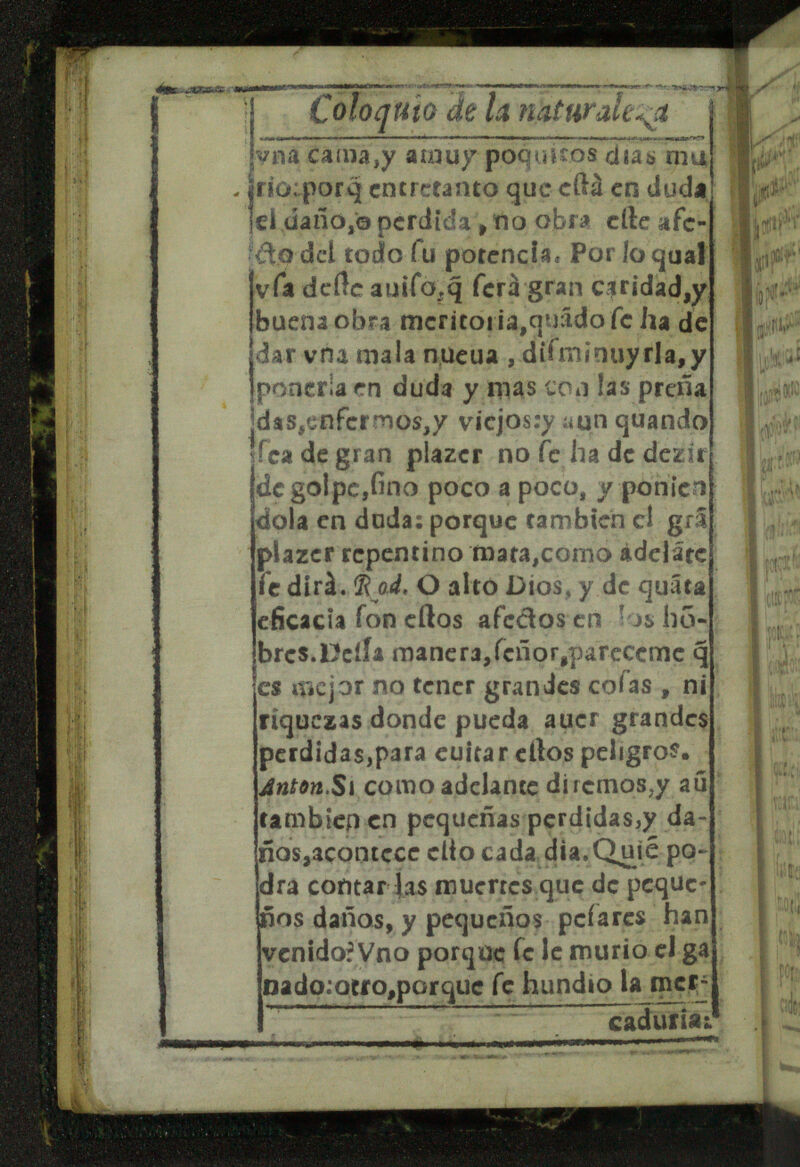 Coloquio de la naturaleza
vna cama,y a muy poquitos dias mu
rio:porq̃ entretanto que eſtà en duda
el daño,o perdida, no obra eſte afe-
cto del todo ſu potencia. Por lo qual
vſa deſte auiſo,q̃ ſerà gran caridad,y
buena obra meritoria,quãdo ſe ha de
dar vna mala nueua, diſminuyrla,y
ponerla en duda y mas con las preña
das,enfermos,y viejos:y aun quando
ſea de gran plazer no ſe ha de dezir
de golpe,ſino poco a poco, y ponien
dola en duda: porque tambien el grã
plazer repentino mata,como adelãte
ſe dirà. Rod. O alto Dios, y de quãta
eficacia ſon eſtos afectos en los hõ-
bres.Deſſa manera,ſeñor,pareceme q̃
es mejor no tener grandes coſas, ni
riquezas donde pueda auer grandes
perdidas,para euitar eſtos peligros.
Anton.Si como adelante diremos,y aũ
tambien en pequeñas perdidas,y da-
ños,acontece eſto cada dia.Quiẽ po-
dra contar las muertes que de peque-
ños daños, y pequeños peſares han
venido?Vno porque ſe le murio el ga
nado:otro,porque ſe hundio la mer-
caduria: